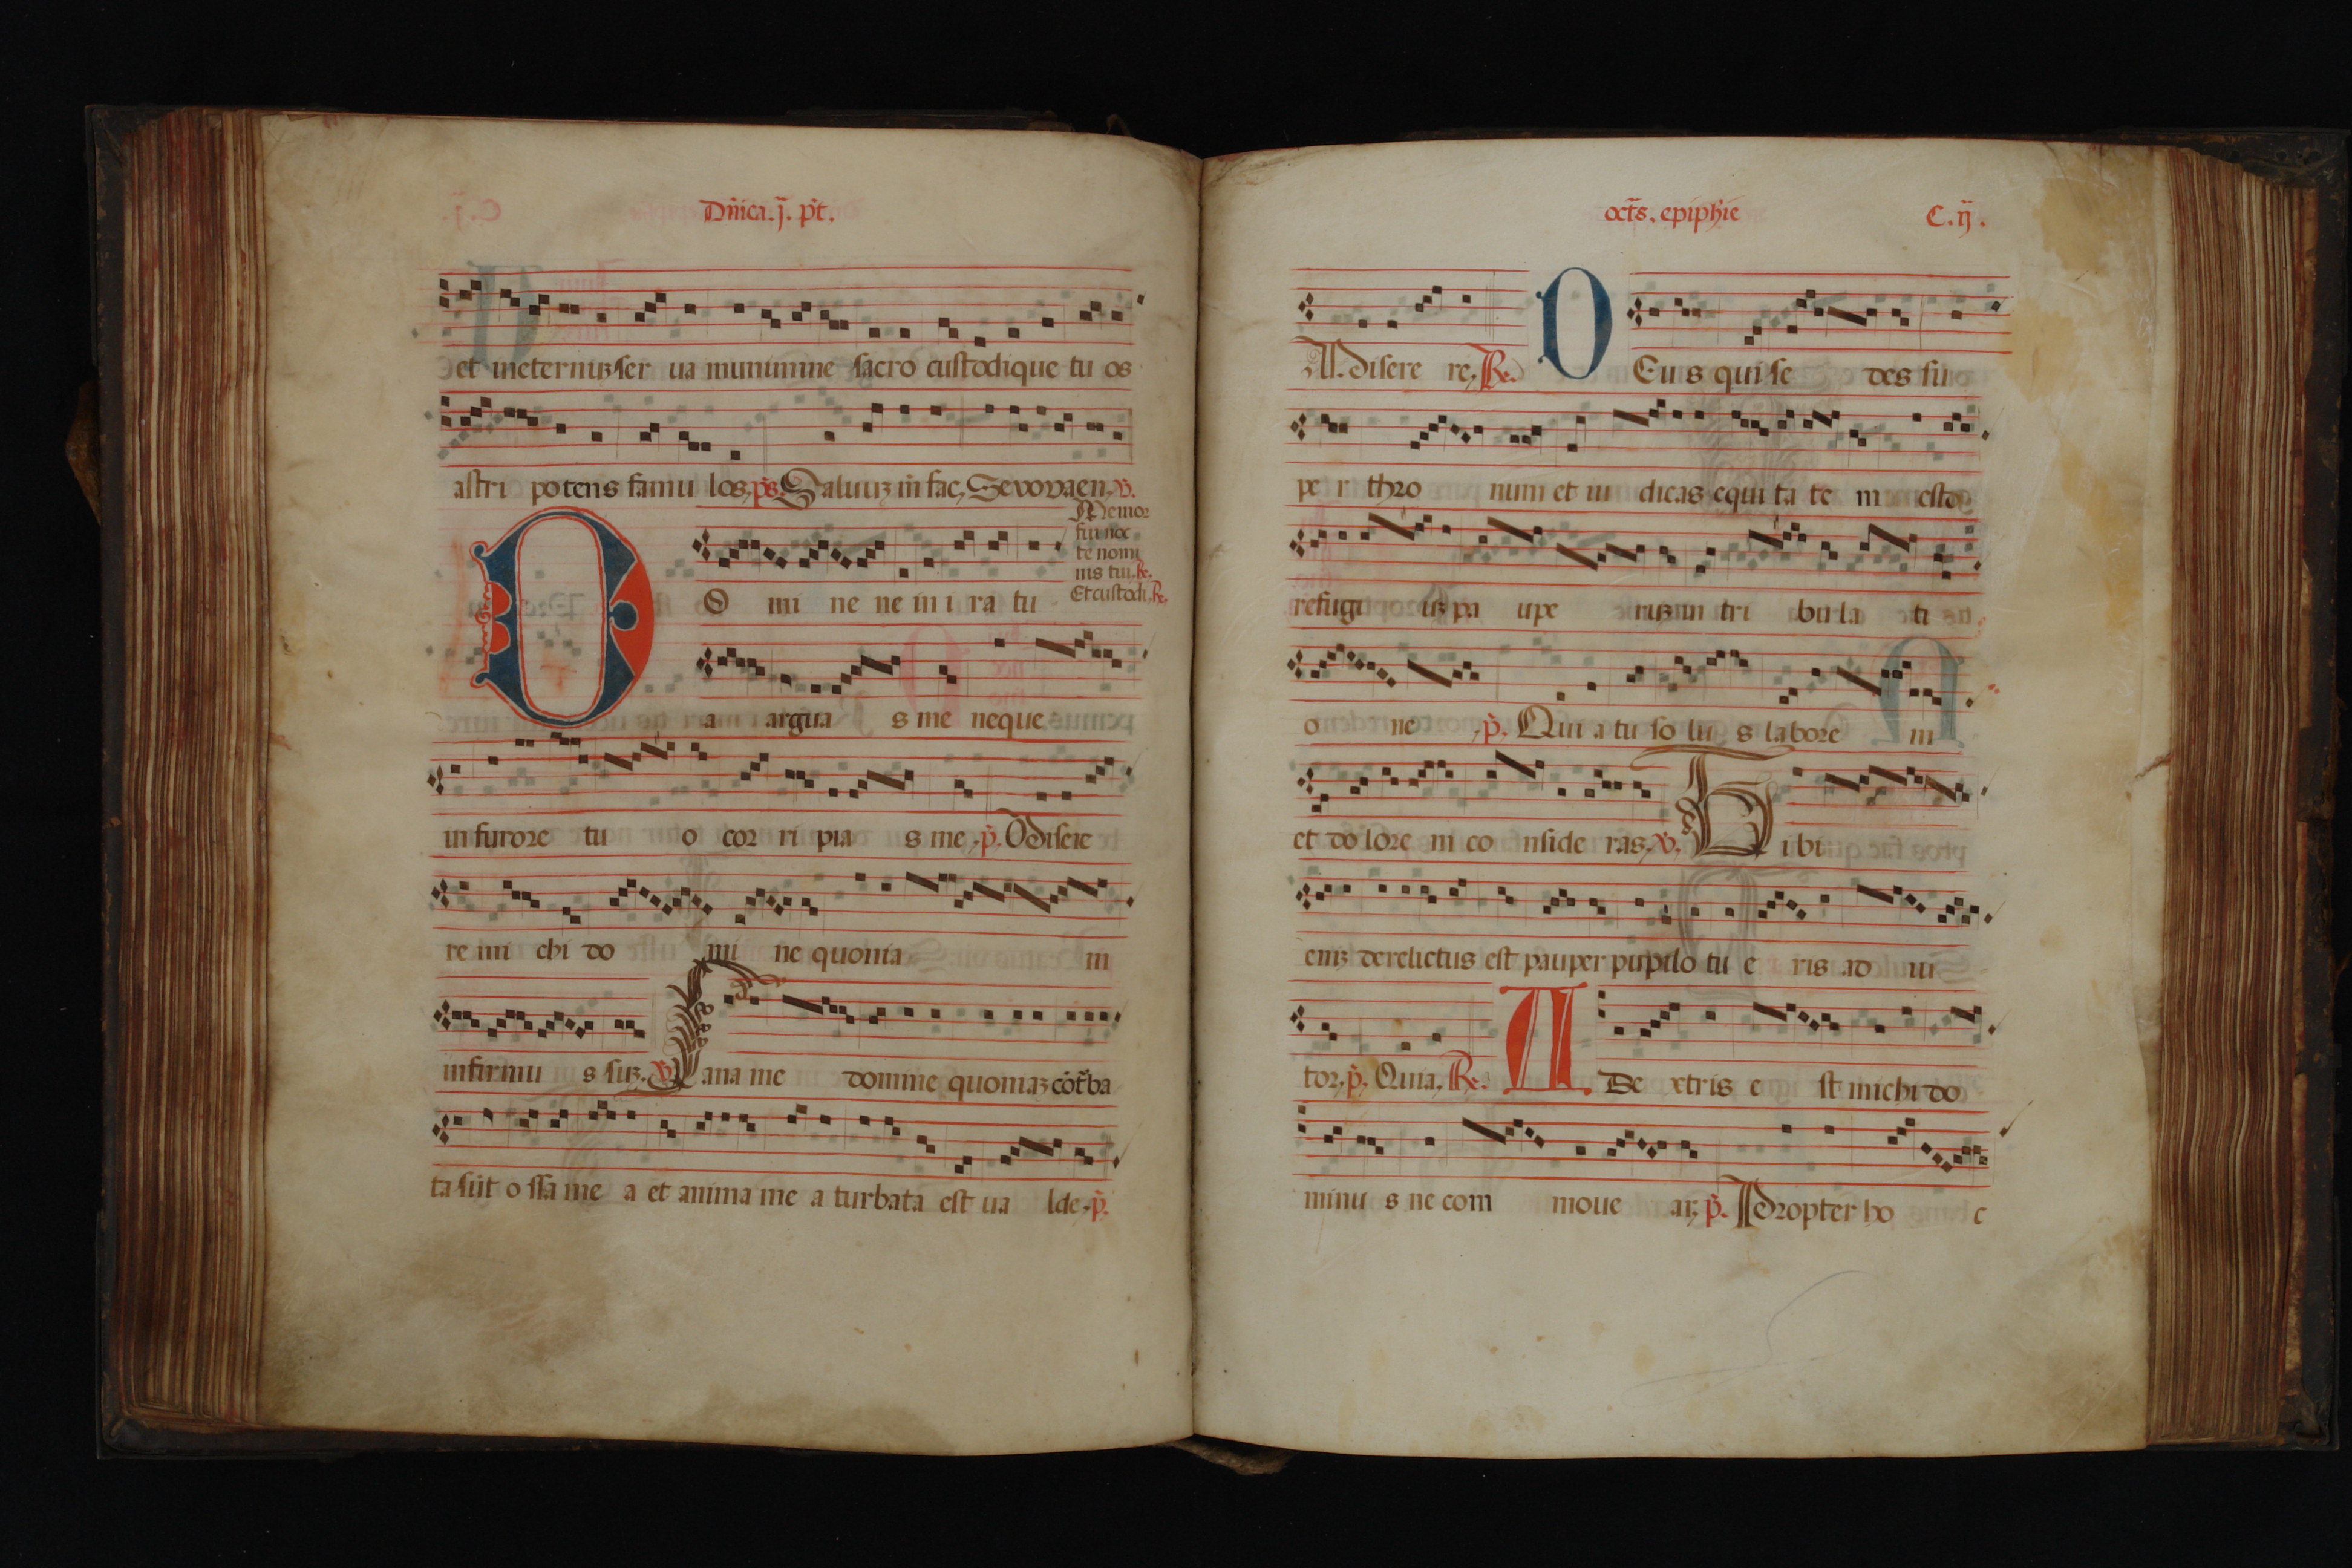 Dñica. j. p̄t.
et ineternuꝫ ser ua munimine sacro custodique tu os
astri potens famu los, p̄s. Saluuꝫ m̄ fac, Sevovaen, v̄.
Memor
fui noc
te nomi
nis tui, Re.
Et custodi, Re.
O mi ne ne in i ra tu
a argua s me neque
in furore tu o cor ri pia s me, p̄. Misere
re mi chi do mi ne quonia m
infirmu s suꝫ. v̄. Sana me domine quoniaꝫ cōt̄ba
ta sūt o ssa me a et anima me a turbata est ua lde, p̄.
oct̄s. epiph̄ie C. ij.
Misere re, Re. D Eus qui se des su
pe r thro num et iu dicas equi ta te m esto
refugi uꝫ pa upe ruꝫ in tri bu la ti
o ne, p̄. Qui a tu so lu s labore m
et do lore m co nside ras, v̄. Tibi
eniꝫ derelictus est pauper pupilo tu e ris ad iu
tor, p̄. Quia, Re. A De xtris e st michi do
minu s ne com moue ar, p̄. Propter ho c